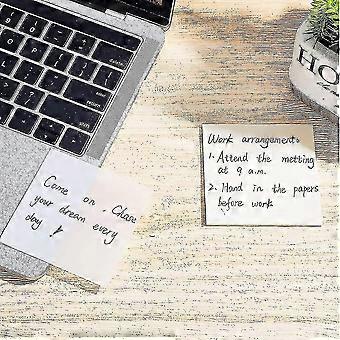 Come on , Chase
your dream every
day !
Work arrangements
1. Attend the metting
at 9 a.m.
2. Hand in the papers
before work
HO